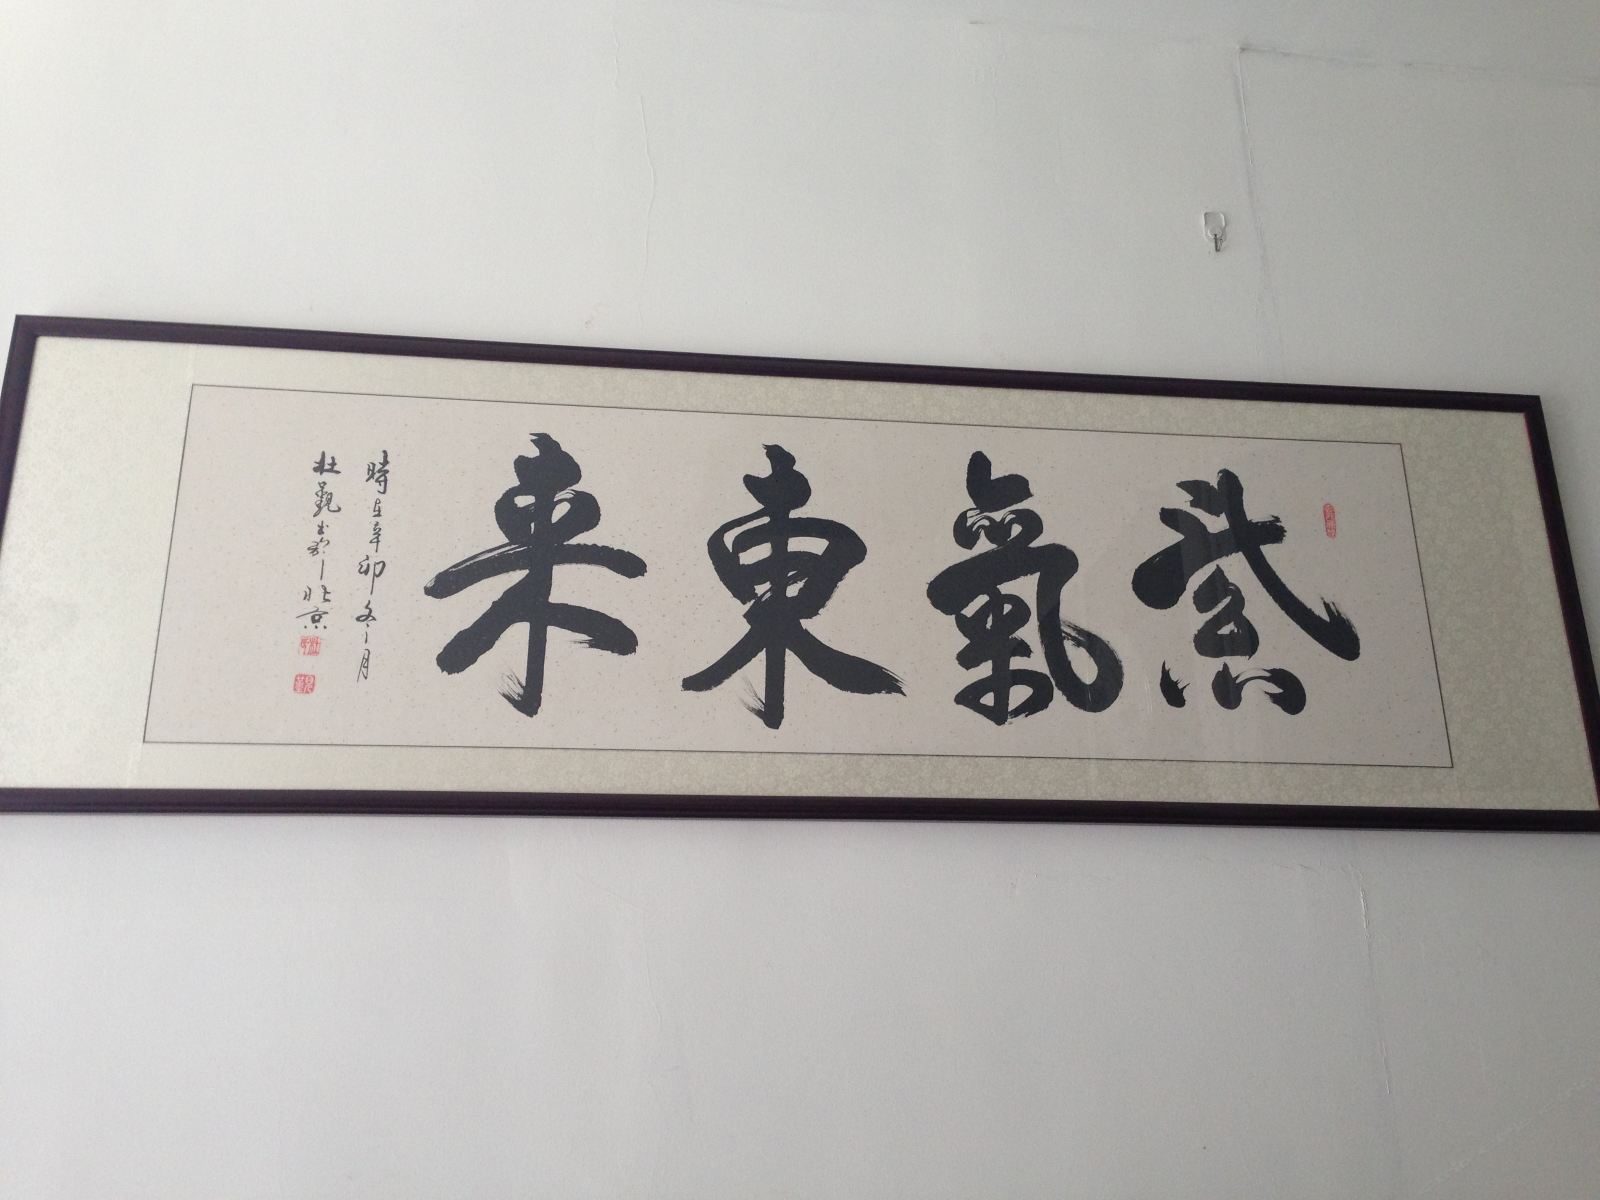 紫氣東来
時在辛卯冬月
杜觀書於北京